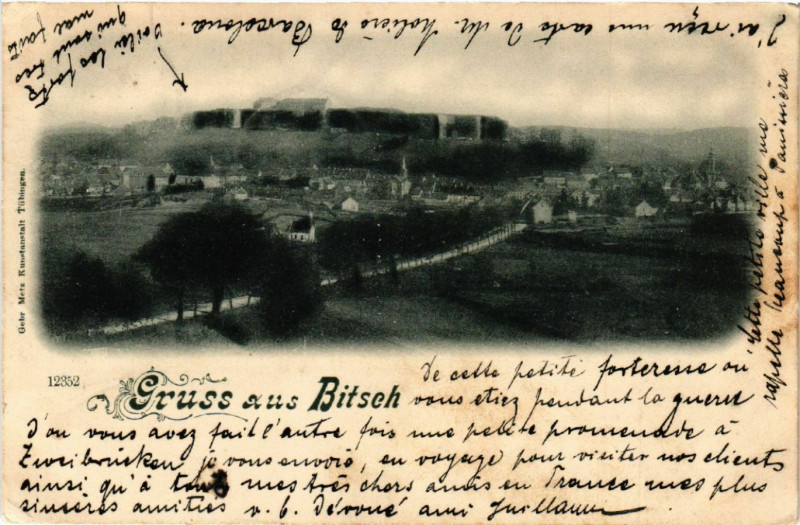 J'ai reçu une carte de Mr. Moliéro de Barcelona.
Voilà les forts
qui sont très
mal faits
Cette petite ville me
rapelle beaucoup à
Gebr Metz Kunstanstalt Tübingen.
12352
Gruss aus Bitsch
De cette petite forteresse où
vous etiez pendant la guerre
d'ou vous avez fait l'autre fois une petite promenade à
Zweibrücken je vous envoie, en voyage pour visiter nos clients
ainsi qu'à tous mes très chers amis en France mes plus
sincères amitiés v. b. Dévoué ami Guillaume